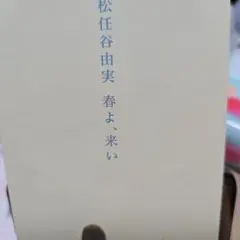 松任谷由実 春よ、来い